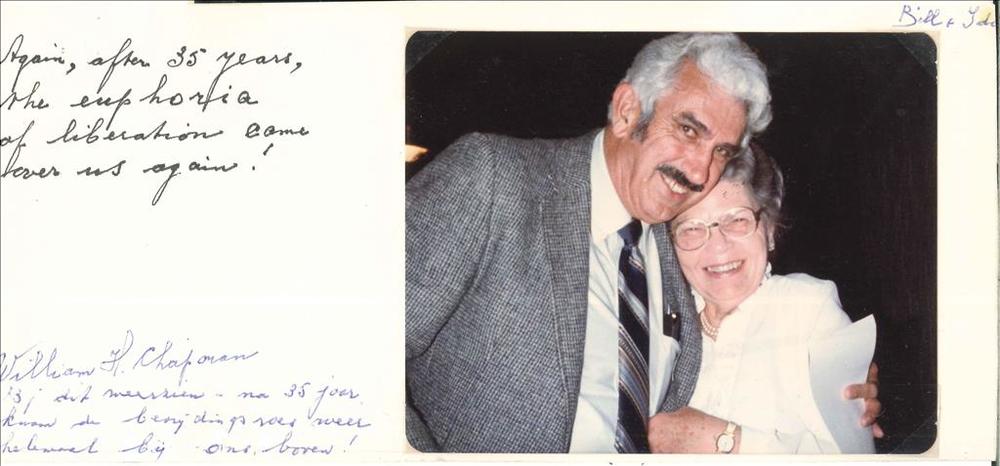 Bill & Ida
Again, after 35 years,
the euphoria
of liberation came
over us again!
William H. Chapman
Bij dit weerzien - na 35 jaar,
kwam de bevrijdingsroes weer
helemaal bij ons boven!